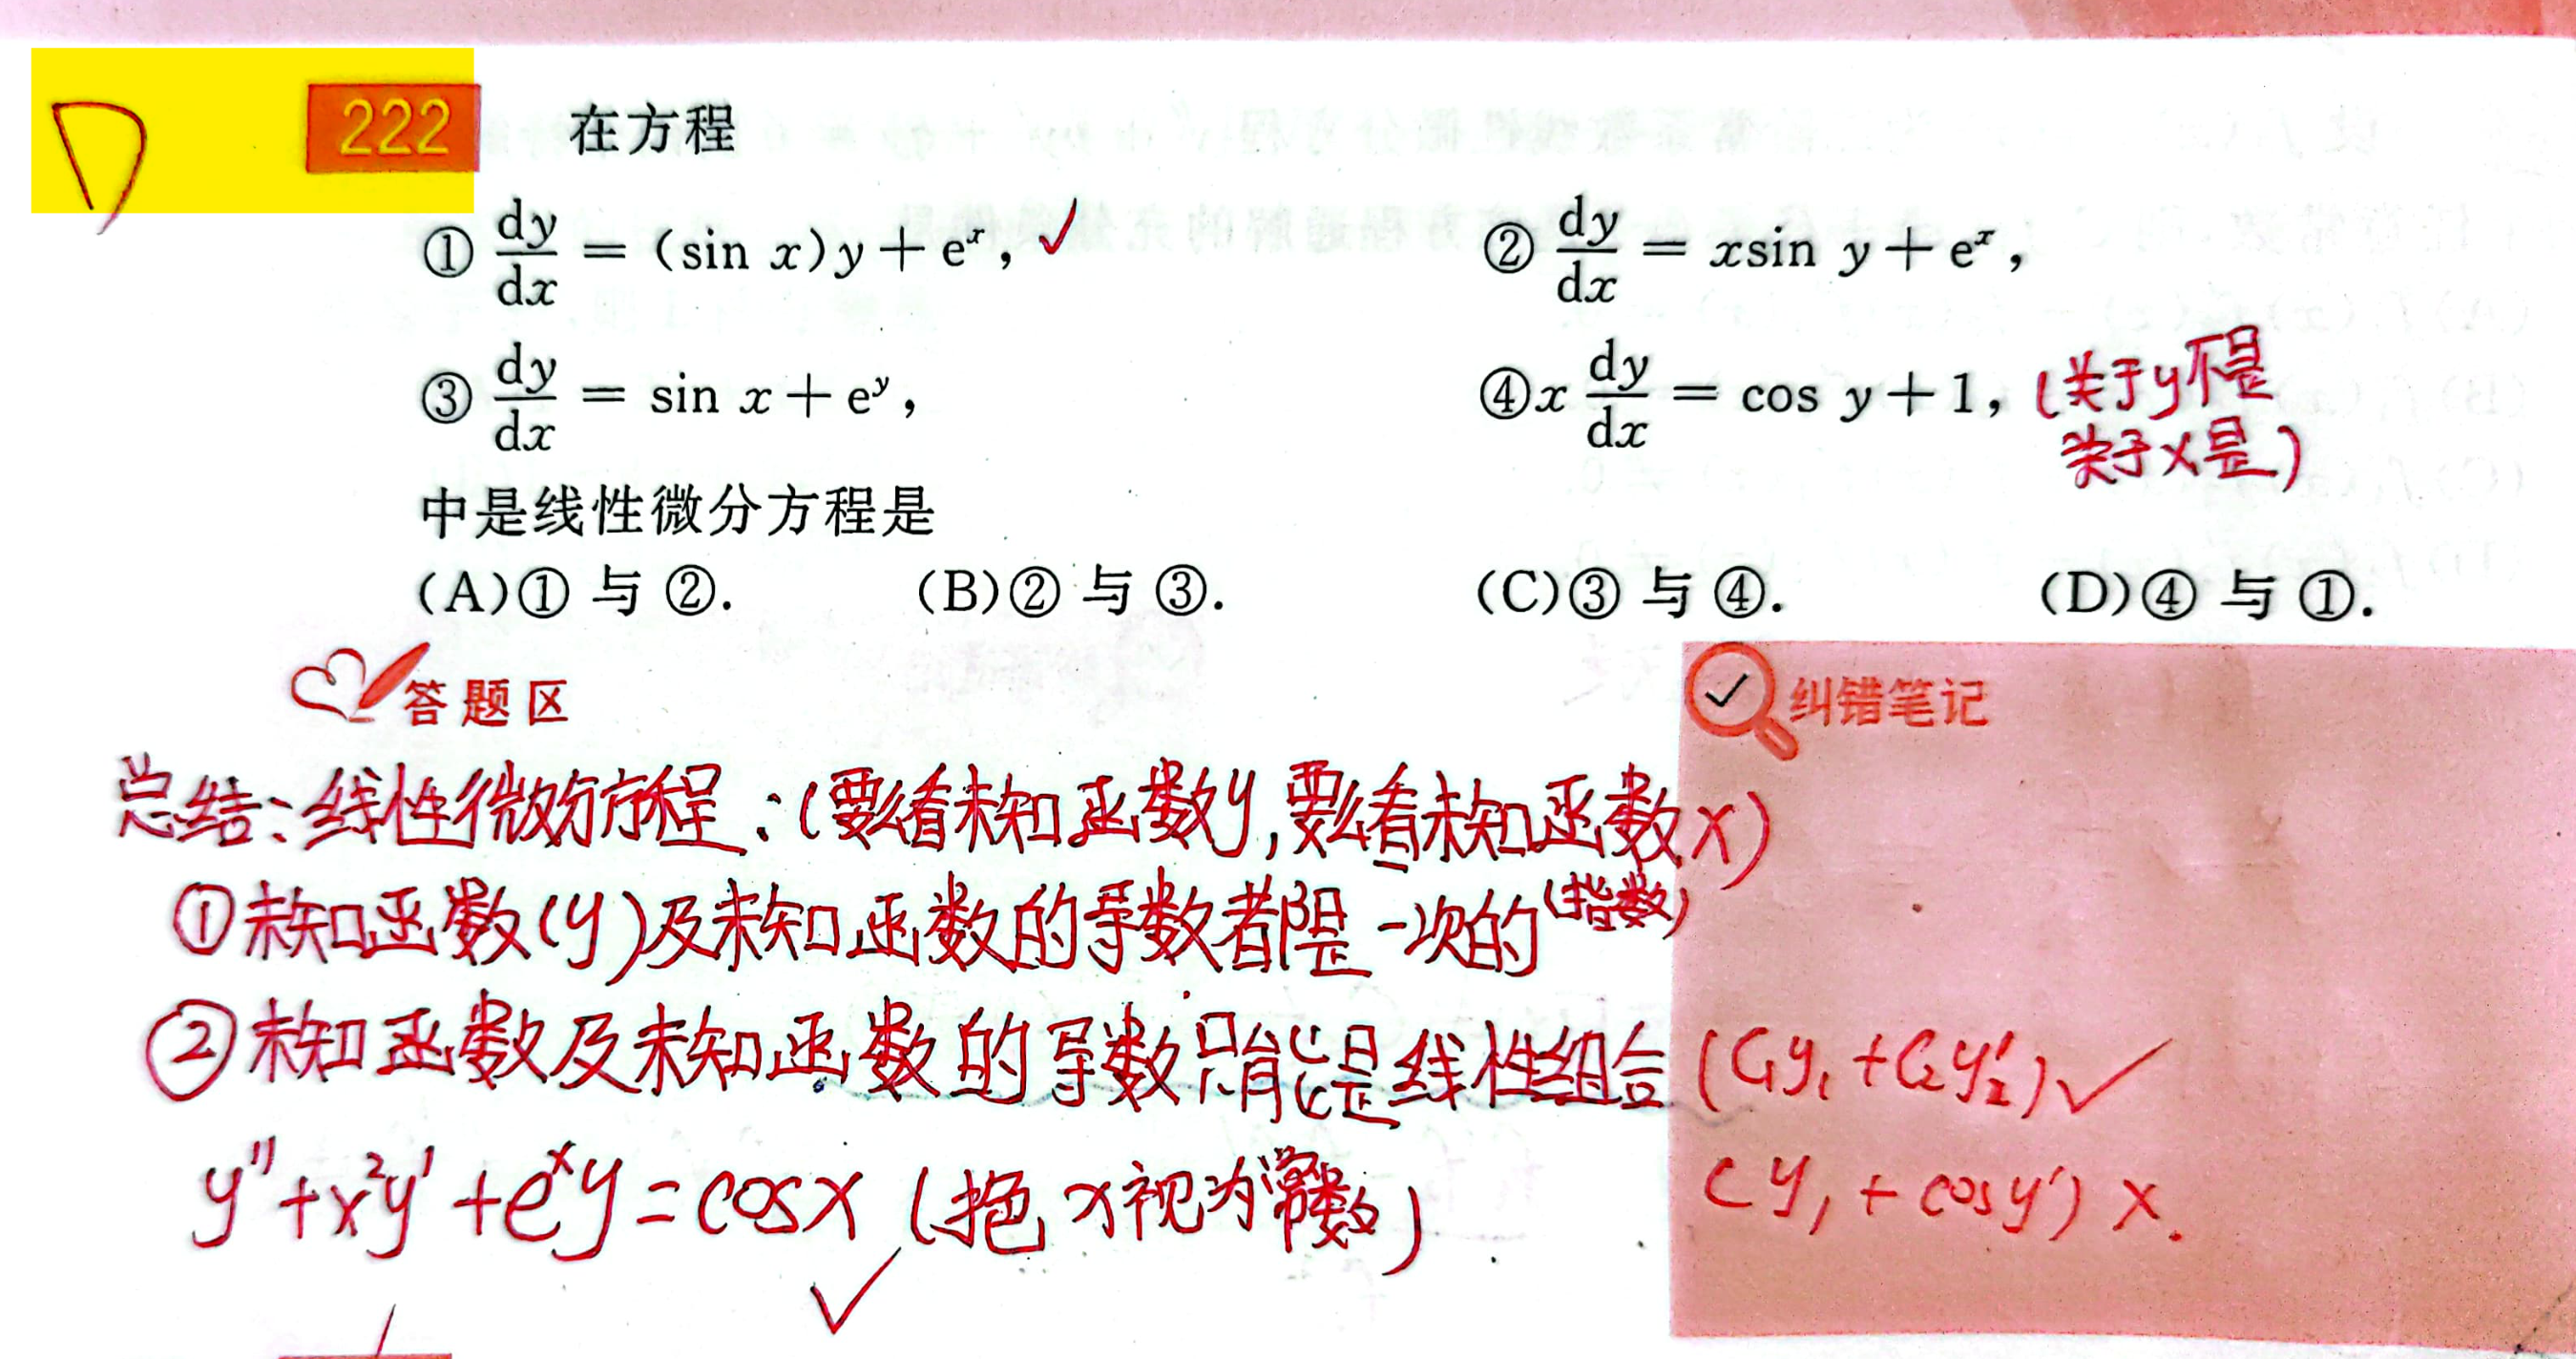 D
222 在方程
① dy/dx = (sin x)y + eˣ, ✓ ② dy/dx = xsin y + eˣ,
③ dy/dx = sin x + eʸ, ④ x dy/dx = cos y + 1, (关于y不是
关于x是)
中是线性微分方程是
(A)① 与 ②. (B)② 与 ③. (C)③ 与 ④. (D)④ 与 ①.
答题区 纠错笔记
总结:线性微分方程:(要么看未知函数y,要么看未知函数x)
①未知函数(y)及未知函数的导数都是一次的(指数)
②未知函数及未知函数的导数只能是线性组合(C₁y₁+C₂y₂′)✓
y″+x²y′+eˣy=cosx (把x视为常数) Cy₁+cosy′) ×.
✓